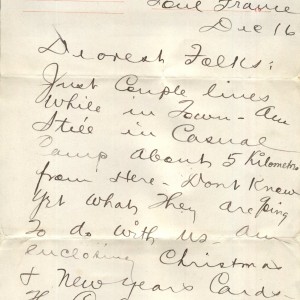 Toul France
Dec 16
Dearest Folks:
Just Couple lines
While in Town - Am
Still in Casual
Camp About 5 Kilometres
from Here - Dont Know
Yet Whats They are going
To do with Us - Am
enclosing Christmas
& New Years Cards